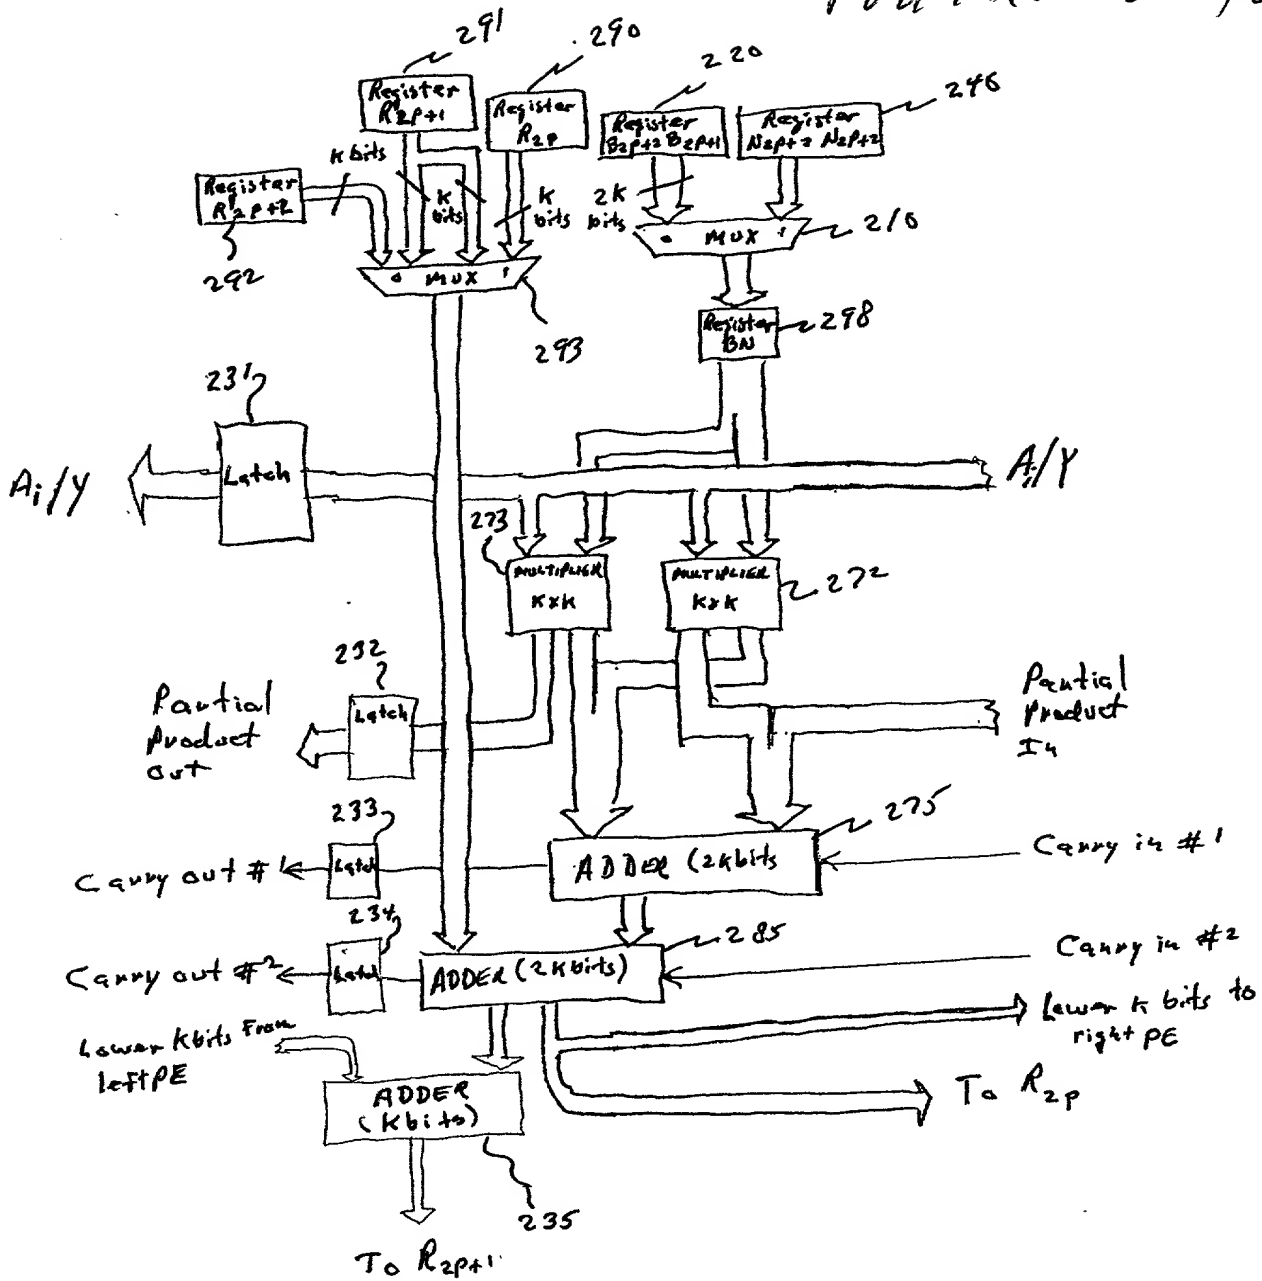 291
290
220
246
Register
R2p+1
Register
R2p
Register
B2p+2 B2p+1
Register
N2p+2 N2p+2
k bits
Register
R2p+2
292
k
bits
k
bits
2k
bits
0 MUX 1
210
0 MUX 1
293
Register
BN
298
231
Latch
Ai/Y
Ai/Y
273
MULTIPLIER
KxK
MULTIPLIER
KxK
272
232
Latch
Partial
Product
out
Partial
Product
In
275
233
Carry out #1
Latch
ADDER (2kbits
Carry in #1
234
285
Carry out #2
Latch
ADDER (2kbits)
Carry in #2
Lower k bits to
right PE
Lower Kbits From
left PE
ADDER
(Kbits)
To R2p
235
To R2p+1